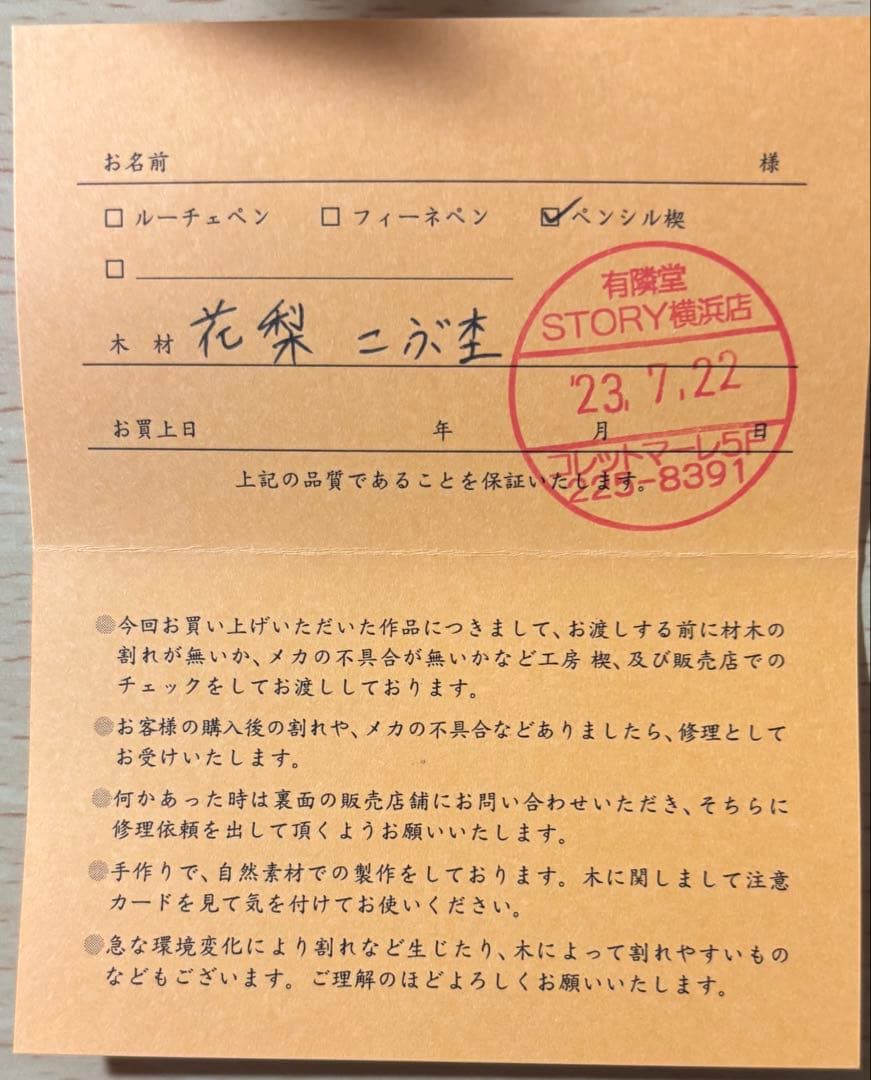 お名前 様
□ ルーチェペン □ フィーネペン ☑ ペンシル楔
□
木材 花梨 こぶ杢
お買上日 年 月 日
上記の品質であることを保証いたします。
有隣堂
STORY横浜店
'23.7.22
コレットマーレ5F
225-8391
●今回お買い上げいただいた作品につきまして、お渡しする前に材木の
割れが無いか、メカの不具合が無いかなど工房 楔、及び販売店での
チェックをしてお渡ししております。
●お客様の購入後の割れや、メカの不具合などありましたら、修理として
お受けいたします。
●何かあった時は裏面の販売店舗にお問い合わせいただき、そちらに
修理依頼を出して頂くようお願いいたします。
●手作りで、自然素材での製作をしております。木に関しまして注意
カードを見て気を付けてお使いください。
●急な環境変化により割れなど生じたり、木によって割れやすいもの
などもございます。ご理解のほどよろしくお願いいたします。